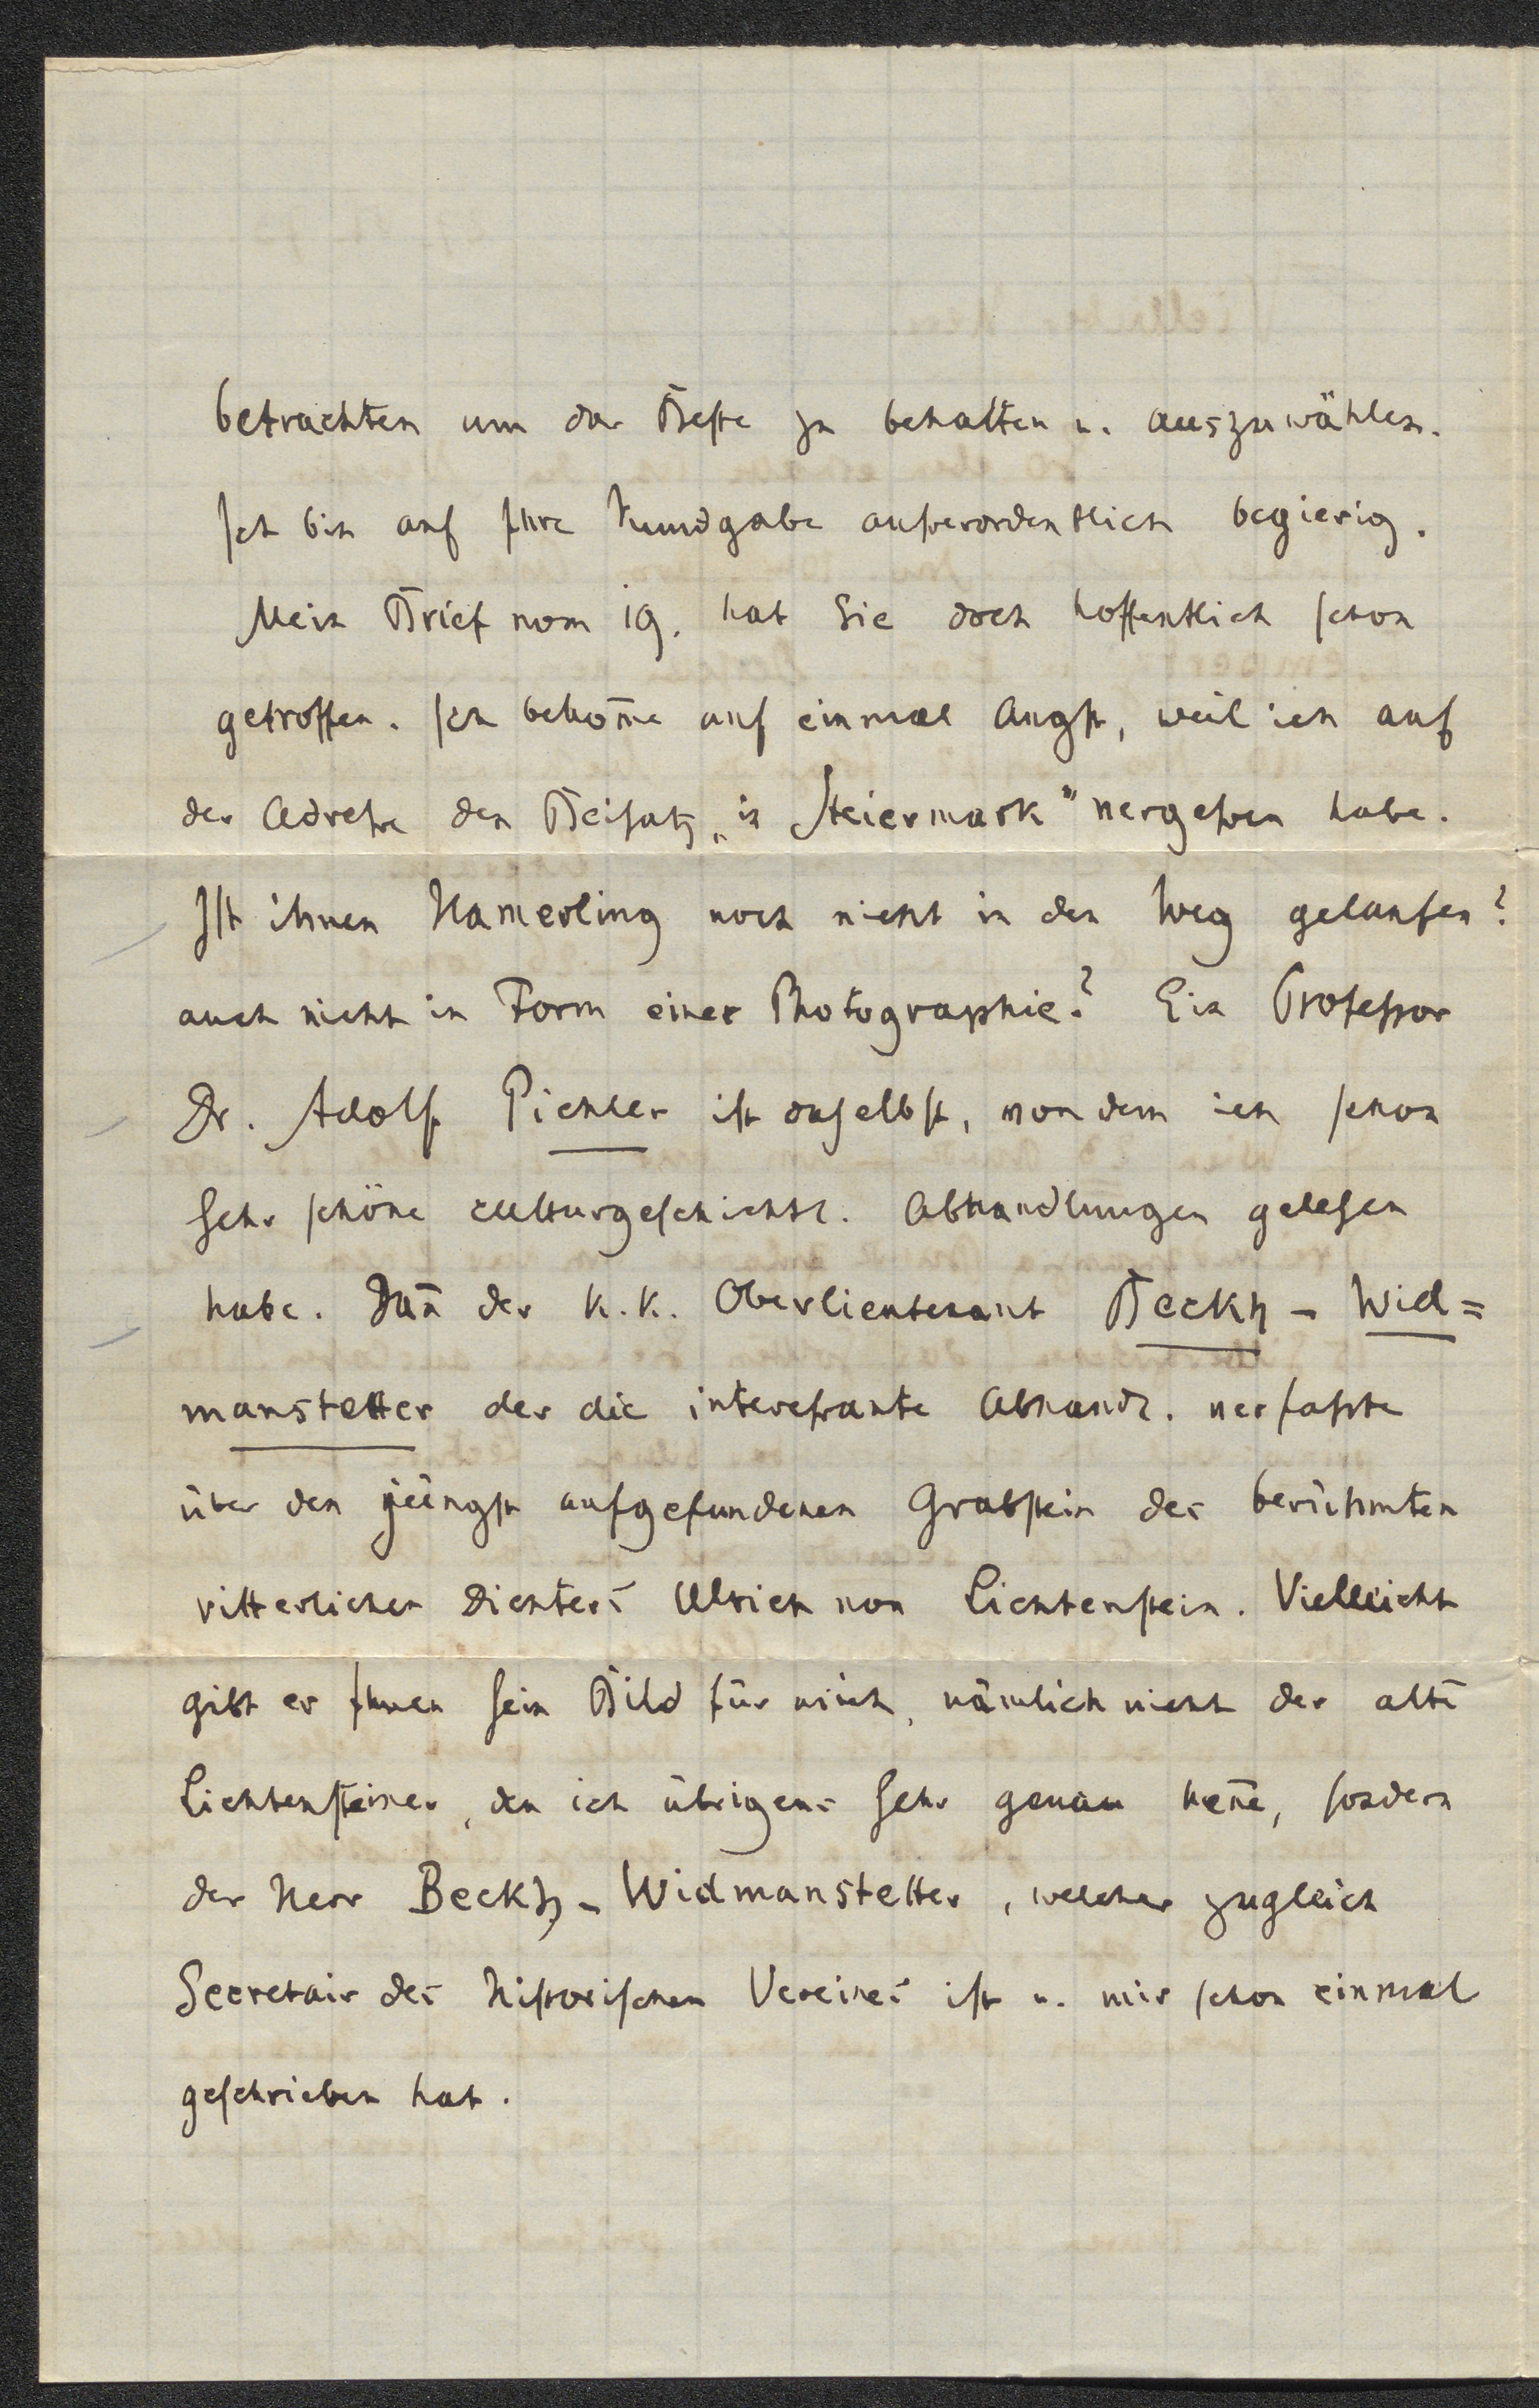 betrachten um das Beste zu behalten u. auszuwählen.
Ich bin auf Ihre Kundgabe außerordentlich begierig.
Mein Brief vom 19. hat Sie doch hoffentlich schon
getroffen. Ich bekom̄e auf einmal Angst, weil ich auf
der Adreße den Beisatz „in Steiermark" vergeßen habe.
Ist ihnen Hamerling noch nicht in den Weg gelaufen?
auch nicht in Form einer Photographie? Ein Profeßor
Dr. Adolf Pichler ist daselbst, von dem ich schon
sehr schöne culturgeschichtl. Abhandlungen gelesen
habe. Dan̄ der k. k. Oberlieutenant Beckh - Wid=
manstetter der die intereßante Abhandl. verfaßte
über den jüngst aufgefundenen Grabstein des berühmten
ritterlichen Dichters Ulrich von Lichtenstein. Vielleicht
gibt er Ihnen sein Bild für mich, nämlich nicht der alte
Lichtensteiner, den ich übrigens sehr genau ken̄e, sondern
der Herr Beckh - Widmanstetter, welcher zugleich
Secretair des historischen Vereines ist u. mir schon einmal
geschrieben hat.